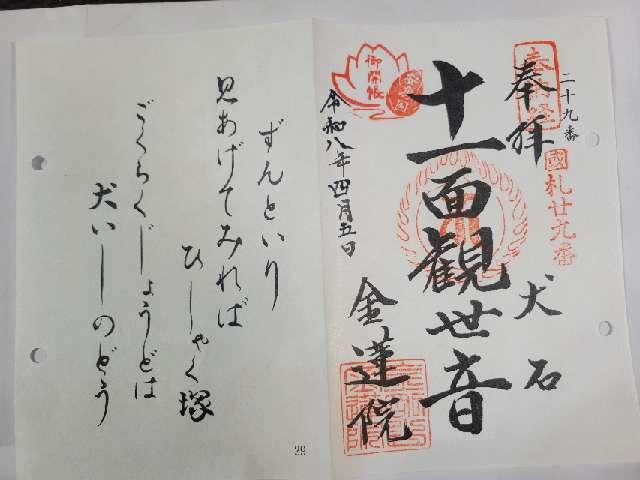 二十九番
國札廿九番
奉拝
犬石
十一面観世音
御開帳
令和八年四月五日
金蓮院
ずんといり
見あげてみれば
ひしゃく塚
ごくらくじょうどは
犬いしのどう
29